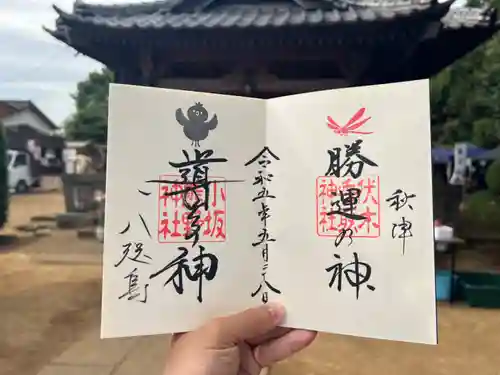 秋津
勝運の神
伏木
神社
令和五年五月二八日
導きの神
小坂
神社
八咫烏